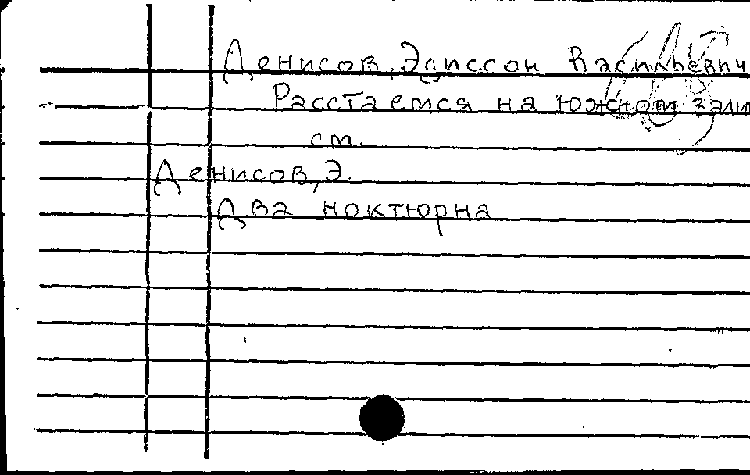 Денисов, Эдиссон Васильевич
Расстаемся на южном
см.
Денисов, Э.
Два ноктюрна